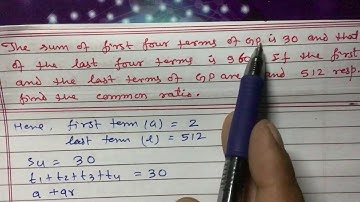 The sum of first four terms of GP is 30 and that
of the last four terms is 960. If the first
and the last terms of GP are and 512 resp
find the common ratio.
Here, first term (a) = 2
last term (l) = 512
S4 = 30
t1+t2+t3+t4 = 30
a + ar